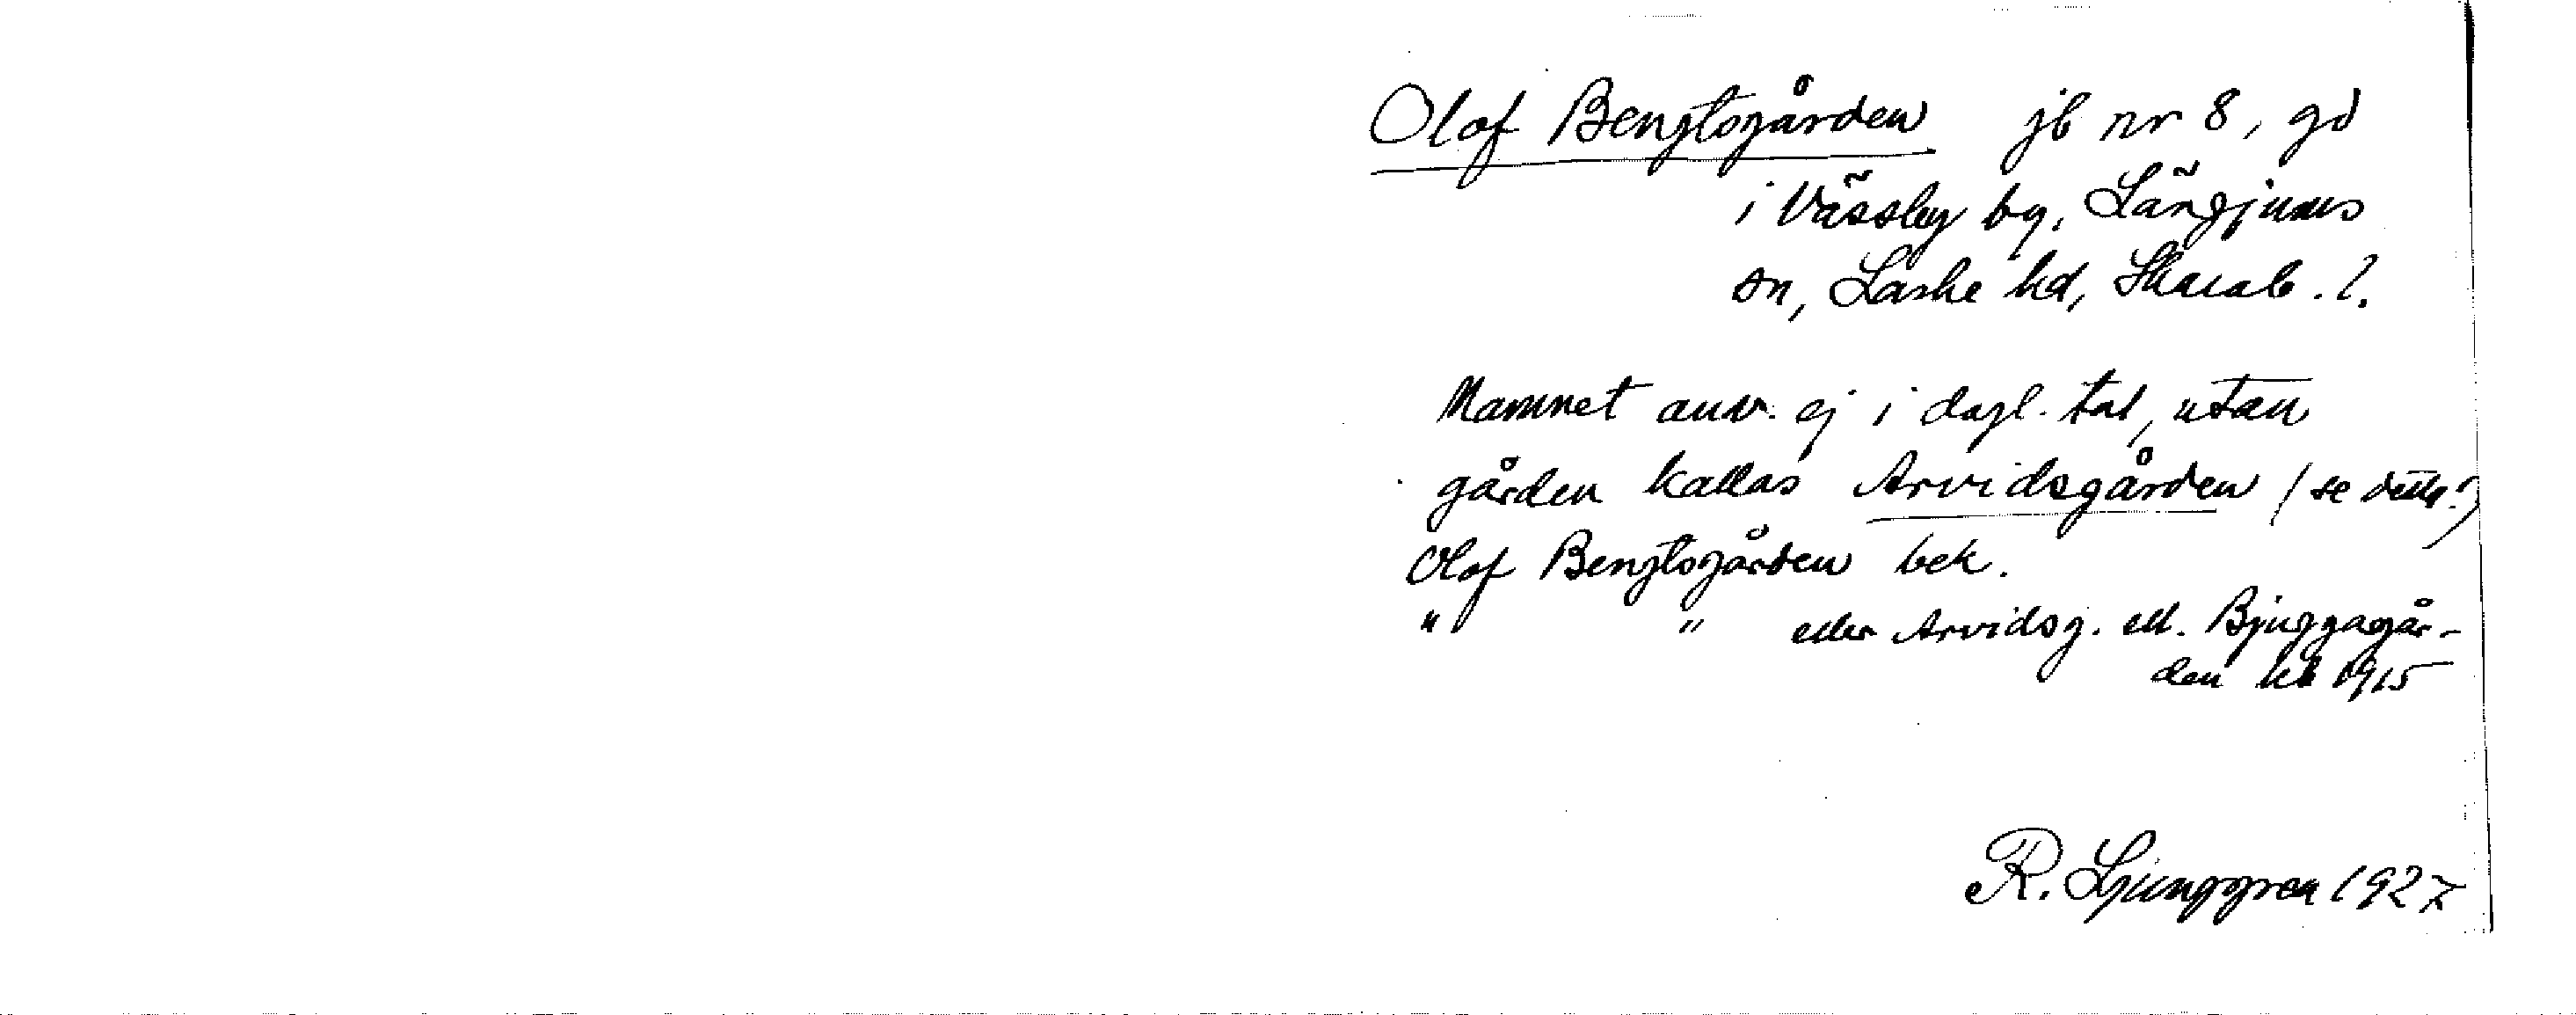 Olof Bengtsgården jb nr 8, gd
i Vässby by, Längjums
sn, Laske hd, Skarab. l.
Namnet anv. ej i dagl. tal, utan
gården kallas Arvidsgården (se detta!)
Olof Bengtsgården bek.
" " eller Arvidsg. ell. Bjuggagår-
den kb 1915
R. Ljunggren 1927